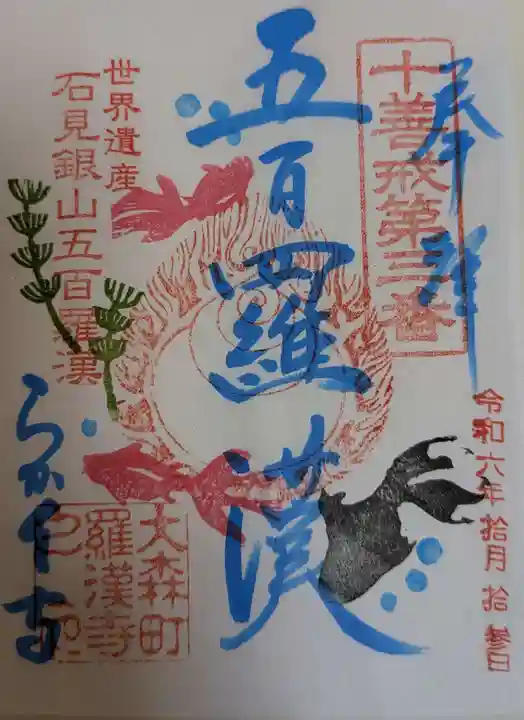 奉拝
十善戒第三番
令和六年拾月拾参日
五百羅漢
世界遺産
石見銀山五百羅漢
らかん寺
大森町
羅漢寺